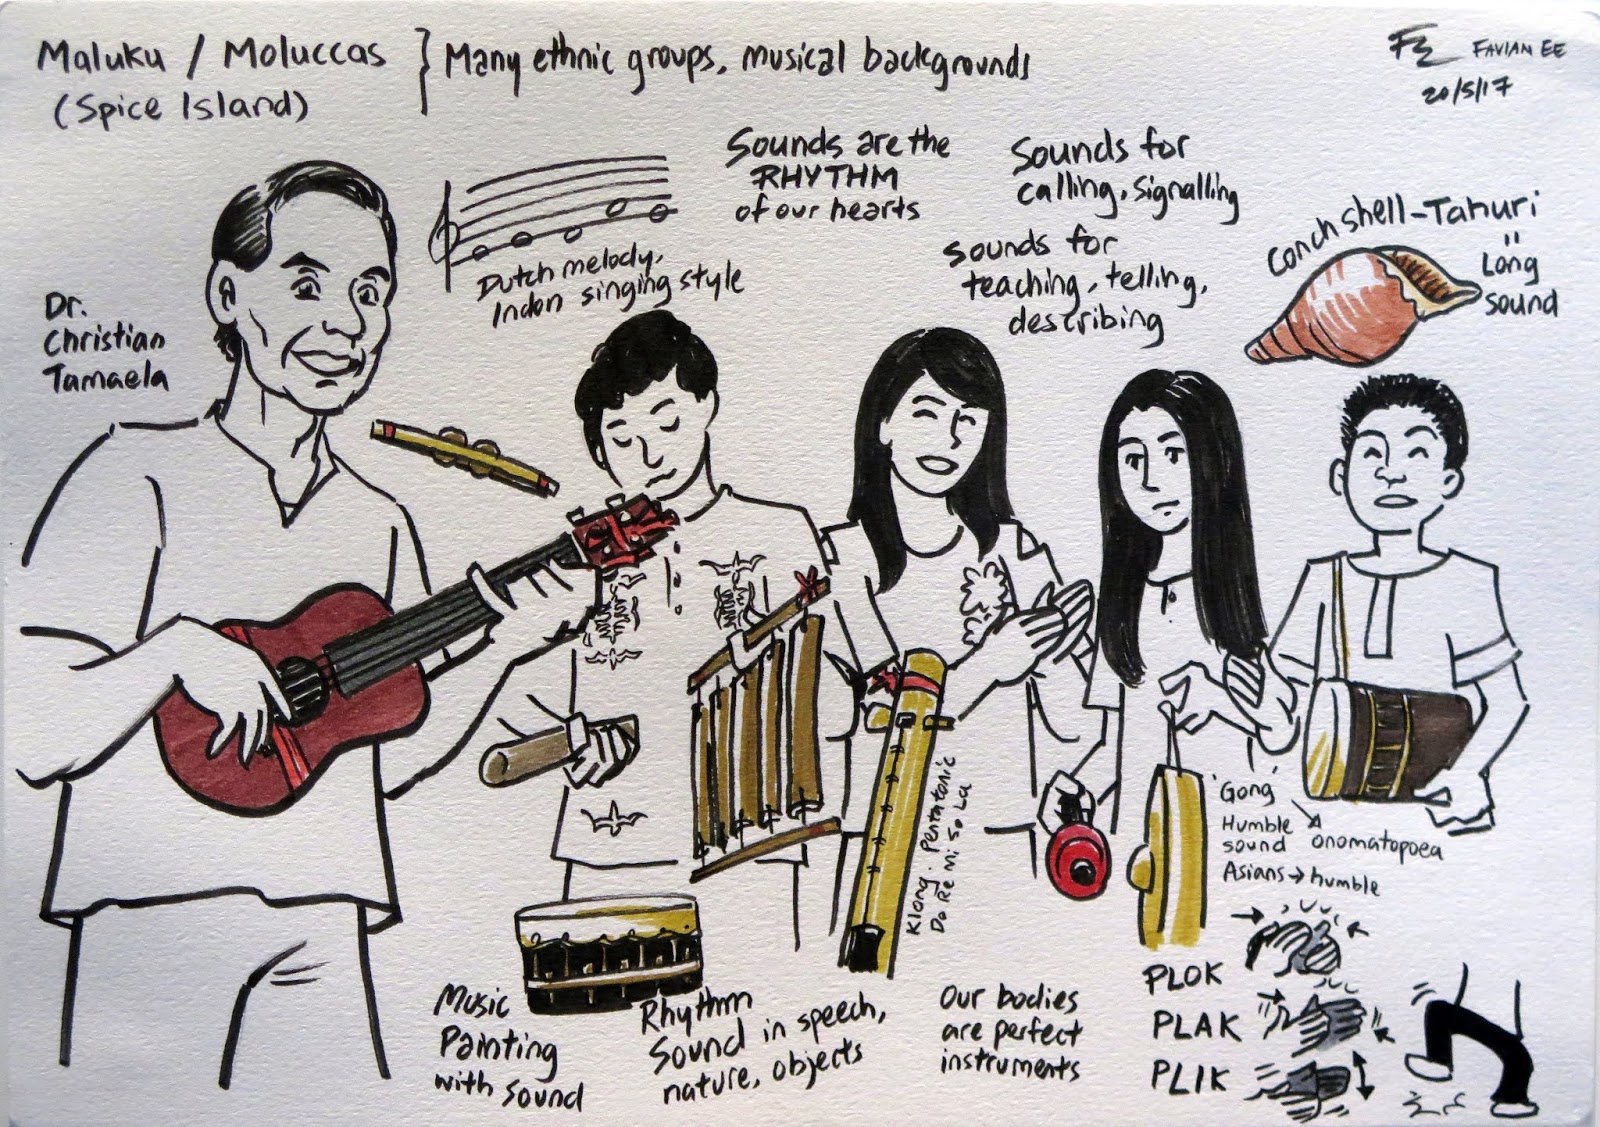 Maluku / Moluccas
(Spice Island)
Many ethnic groups, musical backgrounds
FAVIAN EE
20/5/17
Dr.
Christian
Tamaela
Dutch melody,
Indon singing style
Sounds are the
RHYTHM
of our hearts
Sounds for
calling, signalling
sounds for
teaching, telling,
describing
Conch shell - Tahuri
=
Long
sound
Klong. Pentatonic
Do Re Mi So La
'Gong'
Humble
sound
onomatopoea
Asians → humble
Music
Painting
with sound
Rhythm
Sound in speech,
nature, objects
Our bodies
are perfect
instruments
PLOK
PLAK
PLIK